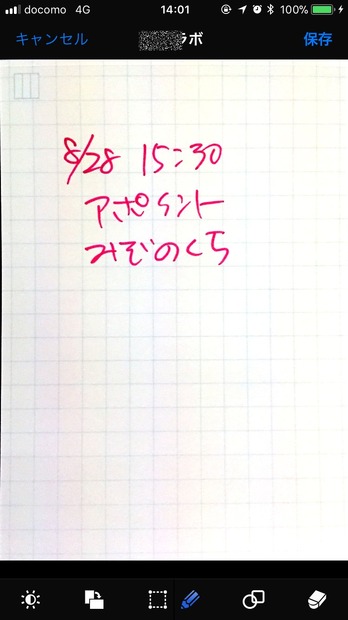 docomo 4G 14:01 100%
キャンセル ラボ 保存
8/28 15:30
アポイント
みぞのくち